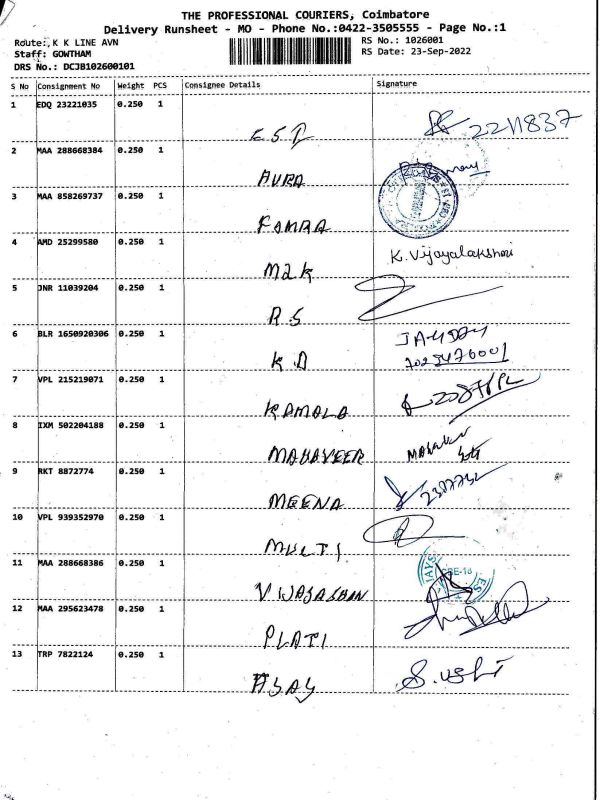 THE PROFESSIONAL COURIERS, Coimbatore
Delivery Runsheet - MO - Phone No.:0422-3505555 - Page No.:1
Route: K K LINE AVN
RS No.: 1026001
Staff: GOWTHAM
RS Date: 23-Sep-2022
DRS No.: DCJB102600101
S No Consignment No Weight PCS Consignee Details Signature
1 EDQ 23221035 0.250 1
ESI 2211837
2 MAA 288668384 0.250 1
AURA
3 MAA 858269737 0.250 1
4 AMD 25299580 0.250 1
K.Vijayalakshmi
M2K
5 JNR 11039204 0.250 1
R.S
6 BLR 1650920306 0.250 1
K.D
7 VPL 215219071 0.250 1
KAMALA
8 IXM 502204188 0.250 1
MAHAVEER
9 RKT 8872774 0.250 1
MEENA
10 VPL 939352970 0.250 1
MULTI
11 MAA 288668386 0.250 1
12 MAA 295623478 0.250 1
PLATI
13 TRP 7822124 0.250 1